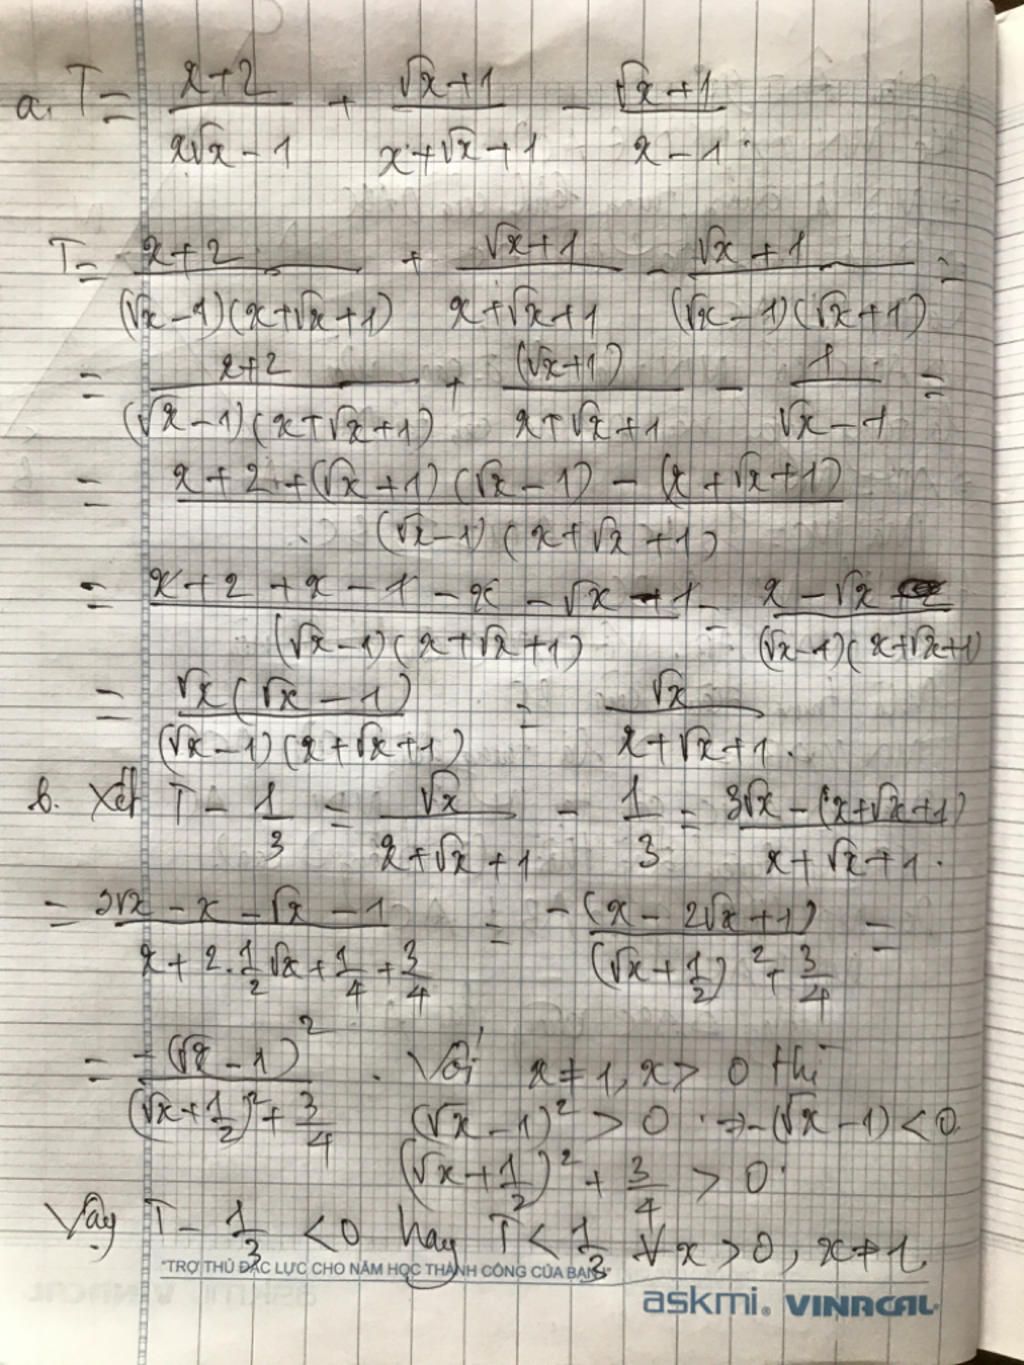 a. T = (x+2)/(x√x - 1) + (√x+1)/(x+√x+1) - (√x+1)/(x-1).
T = (x+2)/((√x-1)(x+√x+1)) + (√x+1)/(x+√x+1) - (√x+1)/((√x-1)(√x+1)) =
= (x+2)/((√x-1)(x+√x+1)) + (√x+1)/(x+√x+1) - 1/(√x-1) =
= (x+2+(√x+1)(√x-1) - (x+√x+1))/((√x-1)(x+√x+1))
= (x+2+x-1-x-√x-1)/((√x-1)(x+√x+1)) = (x-√x)/((√x-1)(x+√x+1))
= (√x(√x-1))/((√x-1)(x+√x+1)) = √x/(x+√x+1).
b. Xét T - 1/3 = √x/(x+√x+1) - 1/3 = (3√x-(x+√x+1))/(x+√x+1).
= (3√x-x-√x-1)/(x+2.1/2√x+1/4+3/4) = -(x-2√x+1)/((√x+1/2)²+3/4) =
= -(√x-1)²/((√x+1/2)²+3/4) . Với x≠1, x>0 thì
(√x-1)² > 0 ⇒ -(√x-1) < 0
(√x+1/2)² + 3/4 > 0.
Vậy T - 1/3 < 0 hay T < 1/3 ∀x>0, x≠1.
"TRỢ THỦ ĐẮC LỰC CHO NĂM HỌC THÀNH CÔNG CỦA BẠN"
askmi® VINACAL